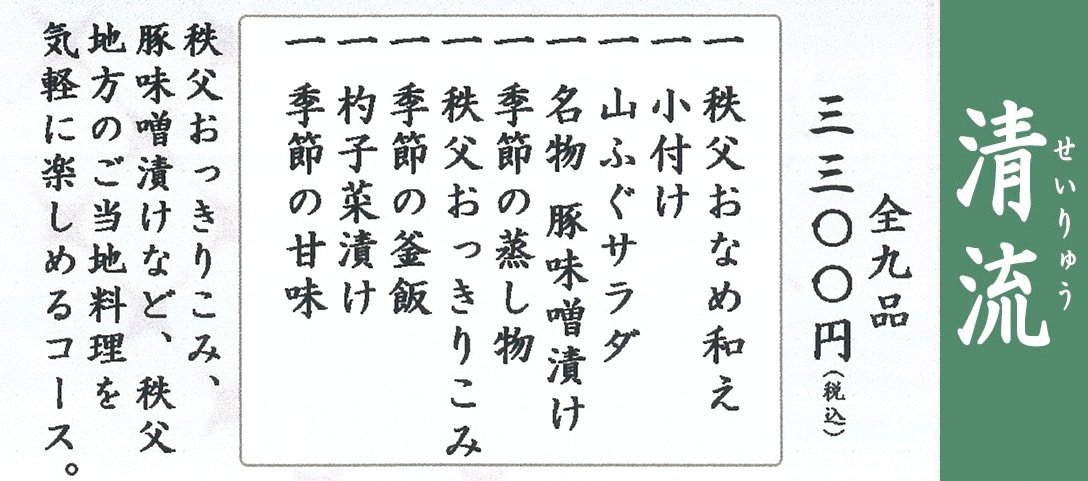 清流
せいりゅう
全九品
三三〇〇円(税込)
一 秩父おなめ和え
一 小付け
一 山ふぐサラダ
一 名物 豚味噌漬け
一 季節の蒸し物
一 秩父おっきりこみ
一 季節の釜飯
一 杓子菜漬け
一 季節の甘味
秩父おっきりこみ、
豚味噌漬けなど、秩父
地方のご当地料理を
気軽に楽しめるコース。